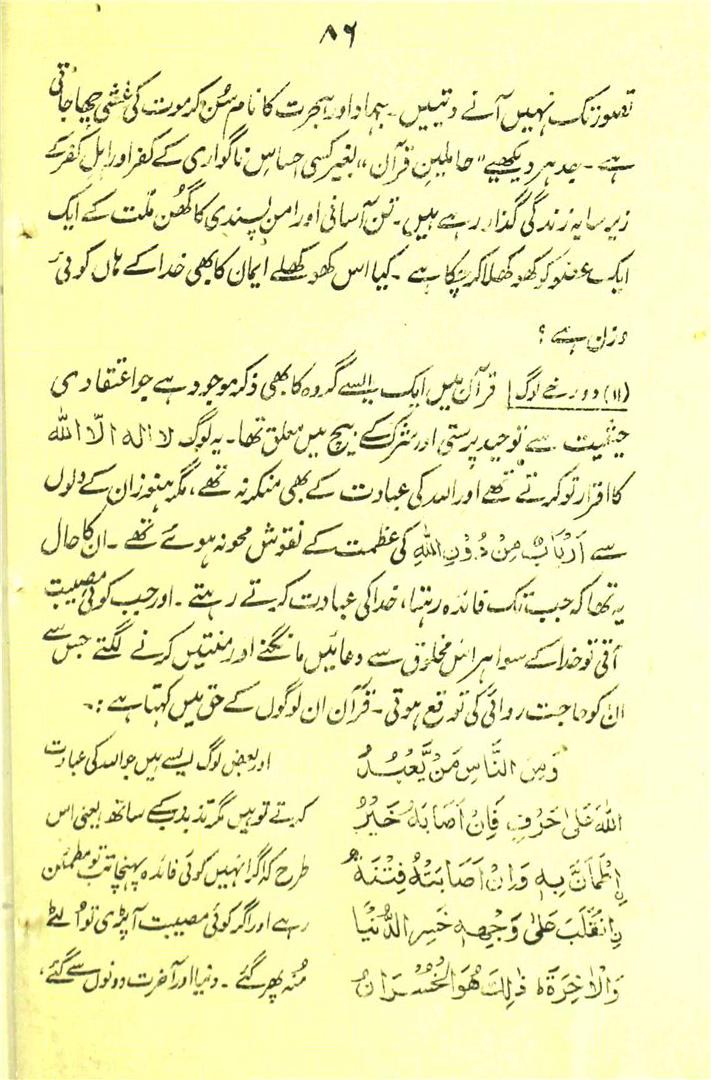 ۸۶
تصور تک نہیں آنے دیتیں۔ جہاد اور ہجرت کا نام سُن کر موت کی غشی چھا جاتی
ہے۔ جدھر دیکھیے "حاملینِ قرآن" بغیر کسی احساسِ ناگواری کے کفر اور اہلِ کفر کے
زیر سایہ زندگی گذار رہے ہیں۔ تن آسانی اور امن پسندی کا گھُن ملت کے ایک
ایک عضو کو کھوکھلا کر چکا ہے۔ کیا اس کھوکھلے ایمان کا بھی خدا کے ہاں کوئی
وزن ہے؟
(۱۱) دو رخے لوگ قرآن میں ایک ایسے گروہ کا بھی ذکر موجود ہے جو اعتقادی
حیثیت سے توحید پرستی اور شرک کے بیچ میں معلق تھا۔ یہ لوگ لا الہ الّا اللہ
کا اقرار تو کرتے تھے اور اللہ کی عبادت کے بھی منکر نہ تھے، مگر ہنوز ان کے دلوں
سے اَرْبَابٌ مِنْ دُوْنِ اللهِ کی عظمت کے نقوش محو نہ ہوئے تھے۔ ان کا حال
یہ تھا کہ جب تک فائدہ رہتا، خدا کی عبادت کرتے رہتے۔ اور جب کوئی مصیبت
آتی تو خدا کے سوا ہر اس مخلوق سے دعائیں مانگنے اور منتیں کرنے لگتے جس سے
ان کو حاجت روائی کی توقع ہوتی۔ قرآن ان لوگوں کے حق میں کہتا ہے :۔
وَمِنَ النَّاسِ مَنْ يَّعْبُدُ اور بعض لوگ ایسے ہیں جو اللہ کی عبادت
اللهَ عَلىٰ حَرْفٍ فَاِنْ اَصَابَهٗ خَيْرُ کرتے تو ہیں مگر تذبذب کے ساتھ یعنی اس
اِطْمَاَنَّ بِهٖ وَاِنْ اَصَابَتْهُ فِتْنَةُ طرح کہ اگر انہیں کوئی فائدہ پہنچا تب تو مطمئن
اِنْقَلَبَ عَلىٰ وَجْهِهٖ خَسِرَ الدُّنْيَا رہے اور اگر کوئی مصیبت آ پڑی تو اُلٹے
وَالْاٰخِرَةَ ؕ ذٰلِكَ هُوَ الْخُسْرَانُ مُنہ پھر گئے۔ دنیا اور آخرت دونوں سے گئے،